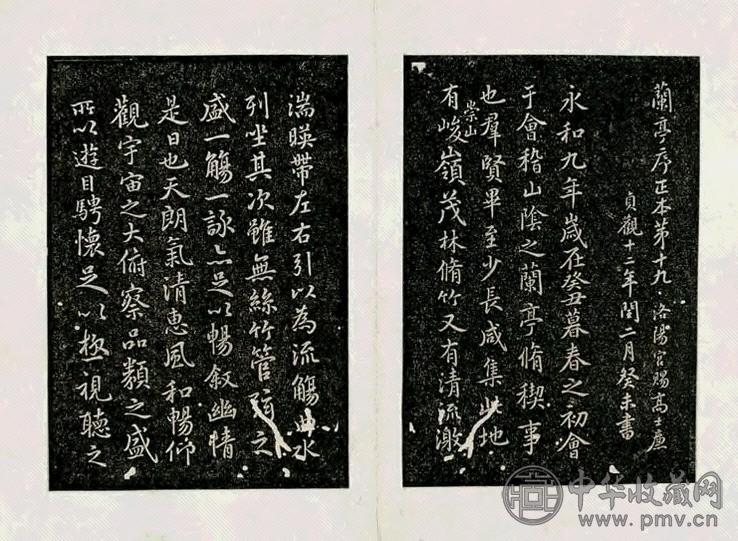 蘭亭序正本第十九 洛陽宮賜高士廉
貞觀十二年閏二月癸未書
永和九年歲在癸丑暮春之初會
于會稽山陰之蘭亭脩稧事
也羣賢畢至少長咸集此地
有崇山峻嶺茂林脩竹又有清流激
湍暎帶左右引以為流觴曲水
列坐其次雖無絲竹管弦之
盛一觴一詠亦足以暢敘幽情
是日也天朗氣清惠風和暢仰
觀宇宙之大俯察品類之盛
所以遊目騁懷足以極視聽之
中华收藏网
www.pmv.cn